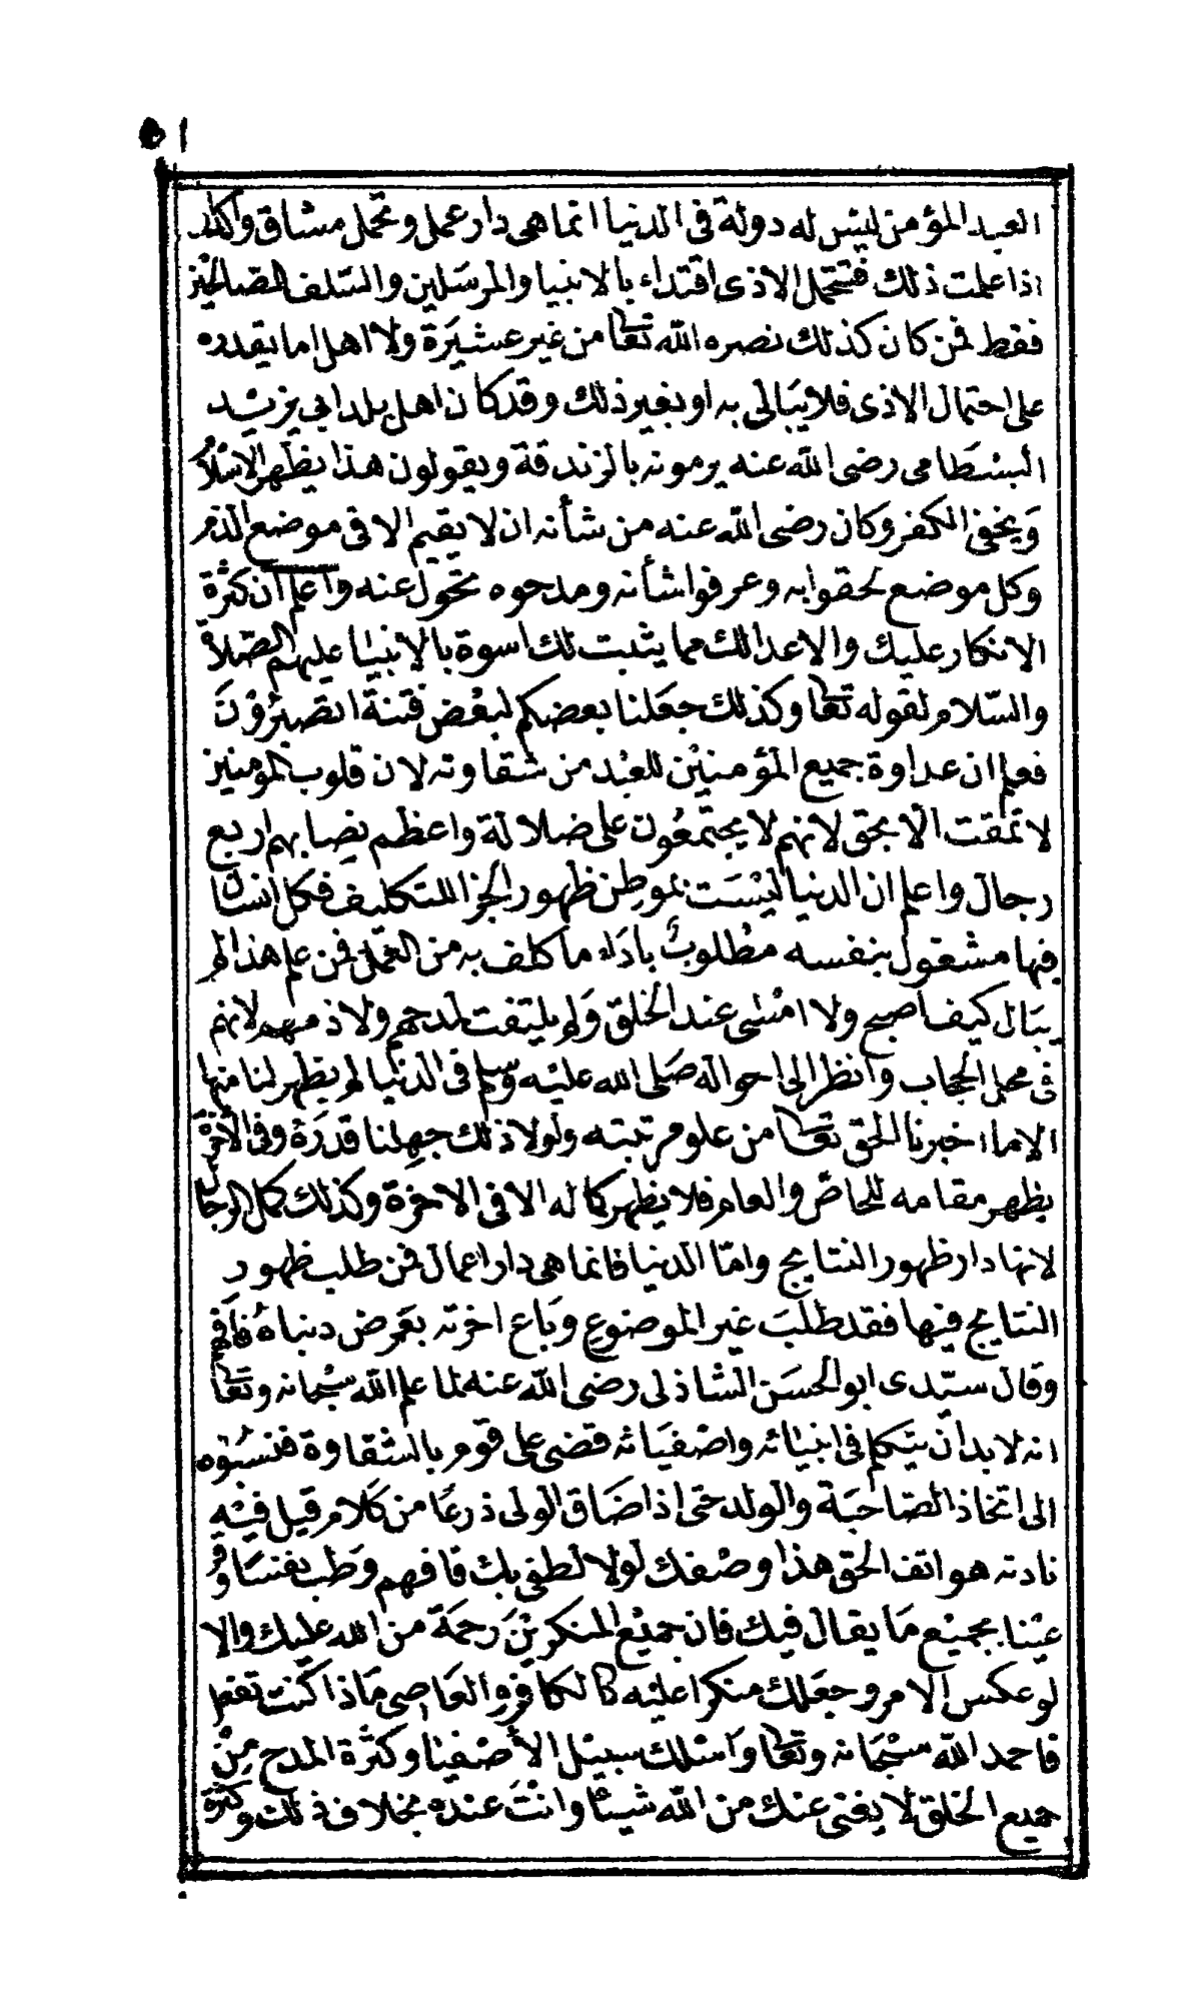 ٥١
العبد المؤمن ليس له دولة فى الدنيا انما هى دار عمل وتحمل مشاق واكدار
اذا علمت ذلك فتحمل الاذى اقتداء بالانبيا والمرسلين والسلف الصالحين
فقط فمن كان كذلك نصره الله تعا من غير عشيرة ولا اهل اما يقدره
على احتمال الاذى فلا يبالى به او بغير ذلك وقد كان اهل بلد ابي يزيد
البسطامى رضى الله عنه يرمونه بالزندقة ويقولون هذا يظهر الاسلام
ويخفى الكفر وكان رضى الله عنه من شأنه ان لا يقيم الا فى موضع الذم
وكل موضع لحقوا به وعرفوا شأنه ومدحوه تحول عنه واعلم ان كثرة
الانكار عليك والاعدا لك مما يثبت لك اسوة بالانبيا عليهم الصلاة
والسلام لقوله تعا وكذلك جعلنا بعضكم لبعض فتنة اتصبرون
فعلم ان عداوة جميع المؤمنين للعبد من شقاوته لان قلوب المومنين
لا تمقت الا بحق لانهم لا يجتمعون على ضلالة واعظم نصابهم اربع
رجال واعلم ان الدنيا ليست بموطن ظهور الجزا للتكليف فكل انسان
فيها مشغول بنفسه مطلوب بأداء ما كلف به من العمل فمن علم هذا لم
يبال كيف اصبح ولا امسى عند الخلق ولم يلتفت لمدحهم ولا ذمهم لانهم
فى محل الحجاب وانظر الى احواله صلى الله عليه وسلم فى الدنيا لم يظهر لنا منها
الا ما اخبرنا الحق تعا من علو مرتبته ولولا ذلك جهلنا قدره وفى الاخرة
يظهر مقامه للخاص والعام فلا يظهر كماله الا فى الاخرة وكذلك كمل الرجال
لانها دار ظهور النتايج واما الدنيا فانما هى دار اعمال فمن طلب ظهور
النتايج فيها فقد طلب غير الموضوع وباع اخرته بعرض دنياه فافهم
وقال سيدى ابو الحسن الشاذلى رضى الله عنه لما علم الله سبحانه وتعا
انه لا بد ان يتكلم فى انبيائه واصفيائه قضى على قوم بالشقاوة فنسبوه
الى اتخاذ الصاحبة والولد حتى اذا ضاق الولى ذرعا من كلام قيل فيه
نادته هواتف الحق هذا وصفك لولا لطفى بك فافهم وطب نفسا وقر
عينا بجميع ما يقال فيك فان جميع المنكرين رحمة من الله عليك والا
لو عكس الامر وجعلك منكرا عليه كالكافر والعاصى ماذا كنت تفعل
فاحمد الله سبحانه وتعا واسلك سبيل الأصفيا وكثرة المدح من
جميع الخلق لا يغنى عنك من الله شيئا وانت عنده بخلاف ذلك وكثرة